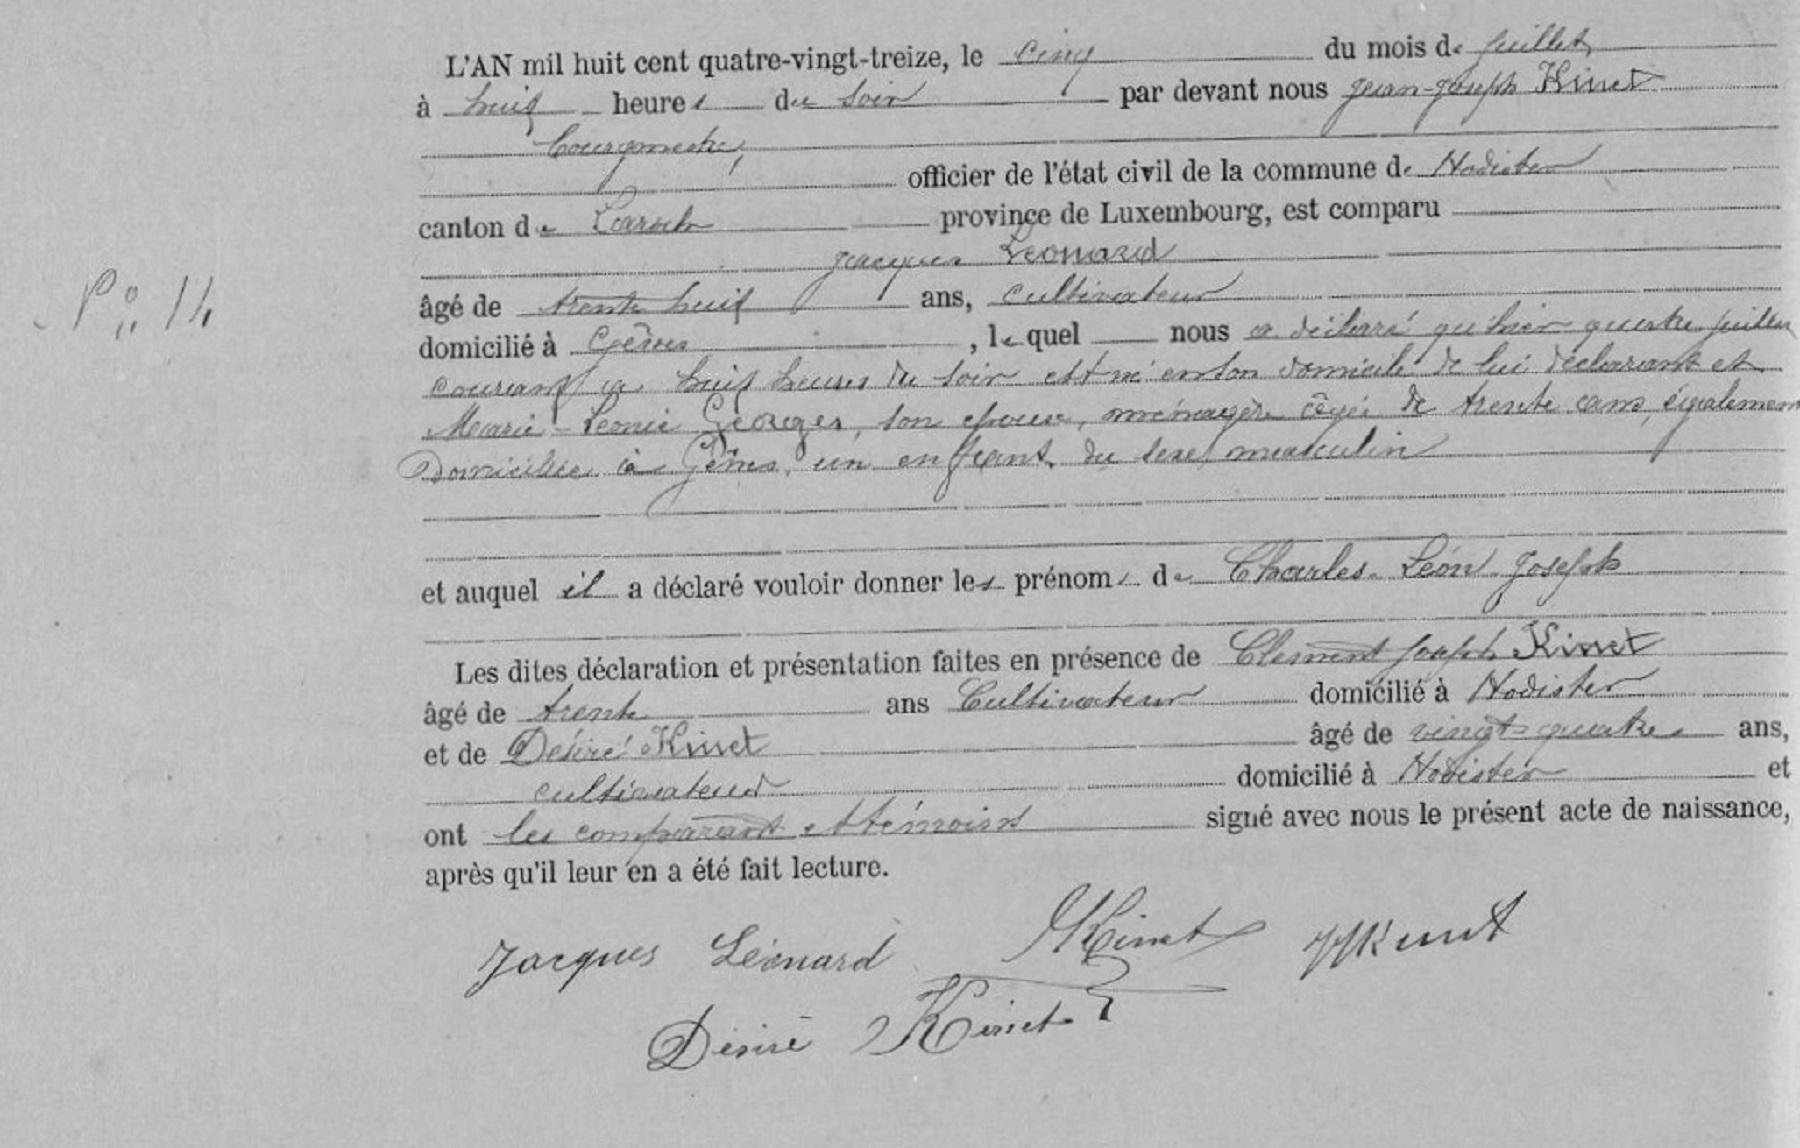 L'AN mil huit cent quatre-vingt-treize, le cinq du mois de juillet
à huit heures du soir par devant nous Jean-Joseph Kinet
bourgmestre,
officier de l'état civil de la commune de Hodister
canton de Laroche province de Luxembourg, est comparu
Jacques Léonard
N° 14
âgé de trente huit ans, cultivateur
domicilié à Gênes, lequel nous a déclaré qu'hier quatre juillet
courant, à huit heures du soir est né en son domicile de lui déclarant et
Marie-Léonie Georges, son épouse, ménagère âgée de trente ans, également
domiciliée à Gênes, un enfant du sexe masculin
et auquel il a déclaré vouloir donner les prénoms de Charles-Léon-Joseph
Les dites déclaration et présentation faites en présence de Clément Joseph Kinet
âgé de trente ans Cultivateur domicilié à Hodister
et de Désiré Kinet âgé de vingt-quatre ans,
cultivateur domicilié à Hodister et
ont les comparant et témoins signé avec nous le présent acte de naissance,
après qu'il leur en a été fait lecture.
Jacques Léonard Kinet JJKinet
Désiré Kinet